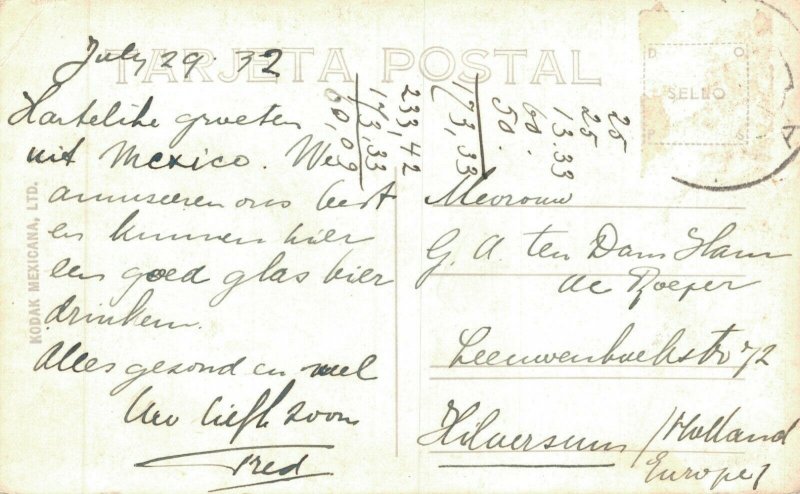 TARJETA POSTAL
July 29. 32
Hartelike groeten
uit Mexico. We
amuseeren ons best
en kunnen hier
een goed glas bier
drinken.
Alles gezond en wel
Uw liefh zoon
Fred
KODAK MEXICANA, LTD.
233,42
173,33
60,09
25
25
13.33
60.
50.
173,33
SELLO
Mevrouw
G. A. ten Dam Ham
de Roever
Leeuwenhoekstr 72
Hilversum / Holland
Europe